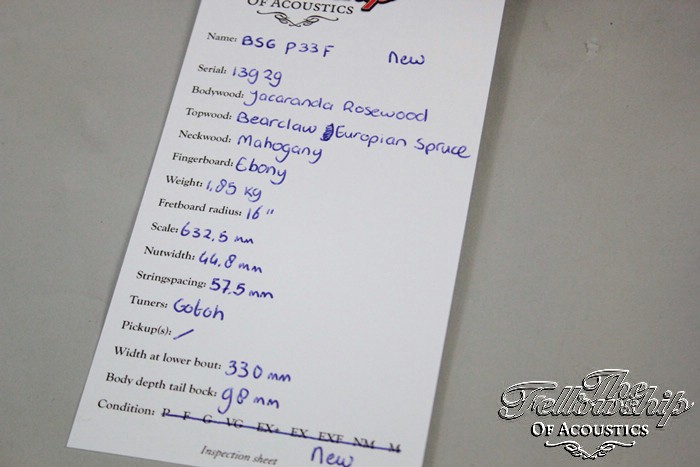 OF ACOUSTICS
Name: BSG P33F New
Serial: 13929
Bodywood: Jacaranda Rosewood
Topwood: Bearclaw Europian Spruce
Neckwood: Mahogany
Fingerboard: Ebony
Weight: 1,85 kg
Fretboard radius: 16"
Scale: 632,5 mm
Nutwidth: 44,8 mm
Stringspacing: 57.5 mm
Tuners: Gotoh
Pickup(s): /
Width at lower bout: 330 mm
Body depth tail bock: 98 mm
Condition: P F G VG EX- EX EXF NM M
Inspection sheet New
The
Fellowship
OF ACOUSTICS